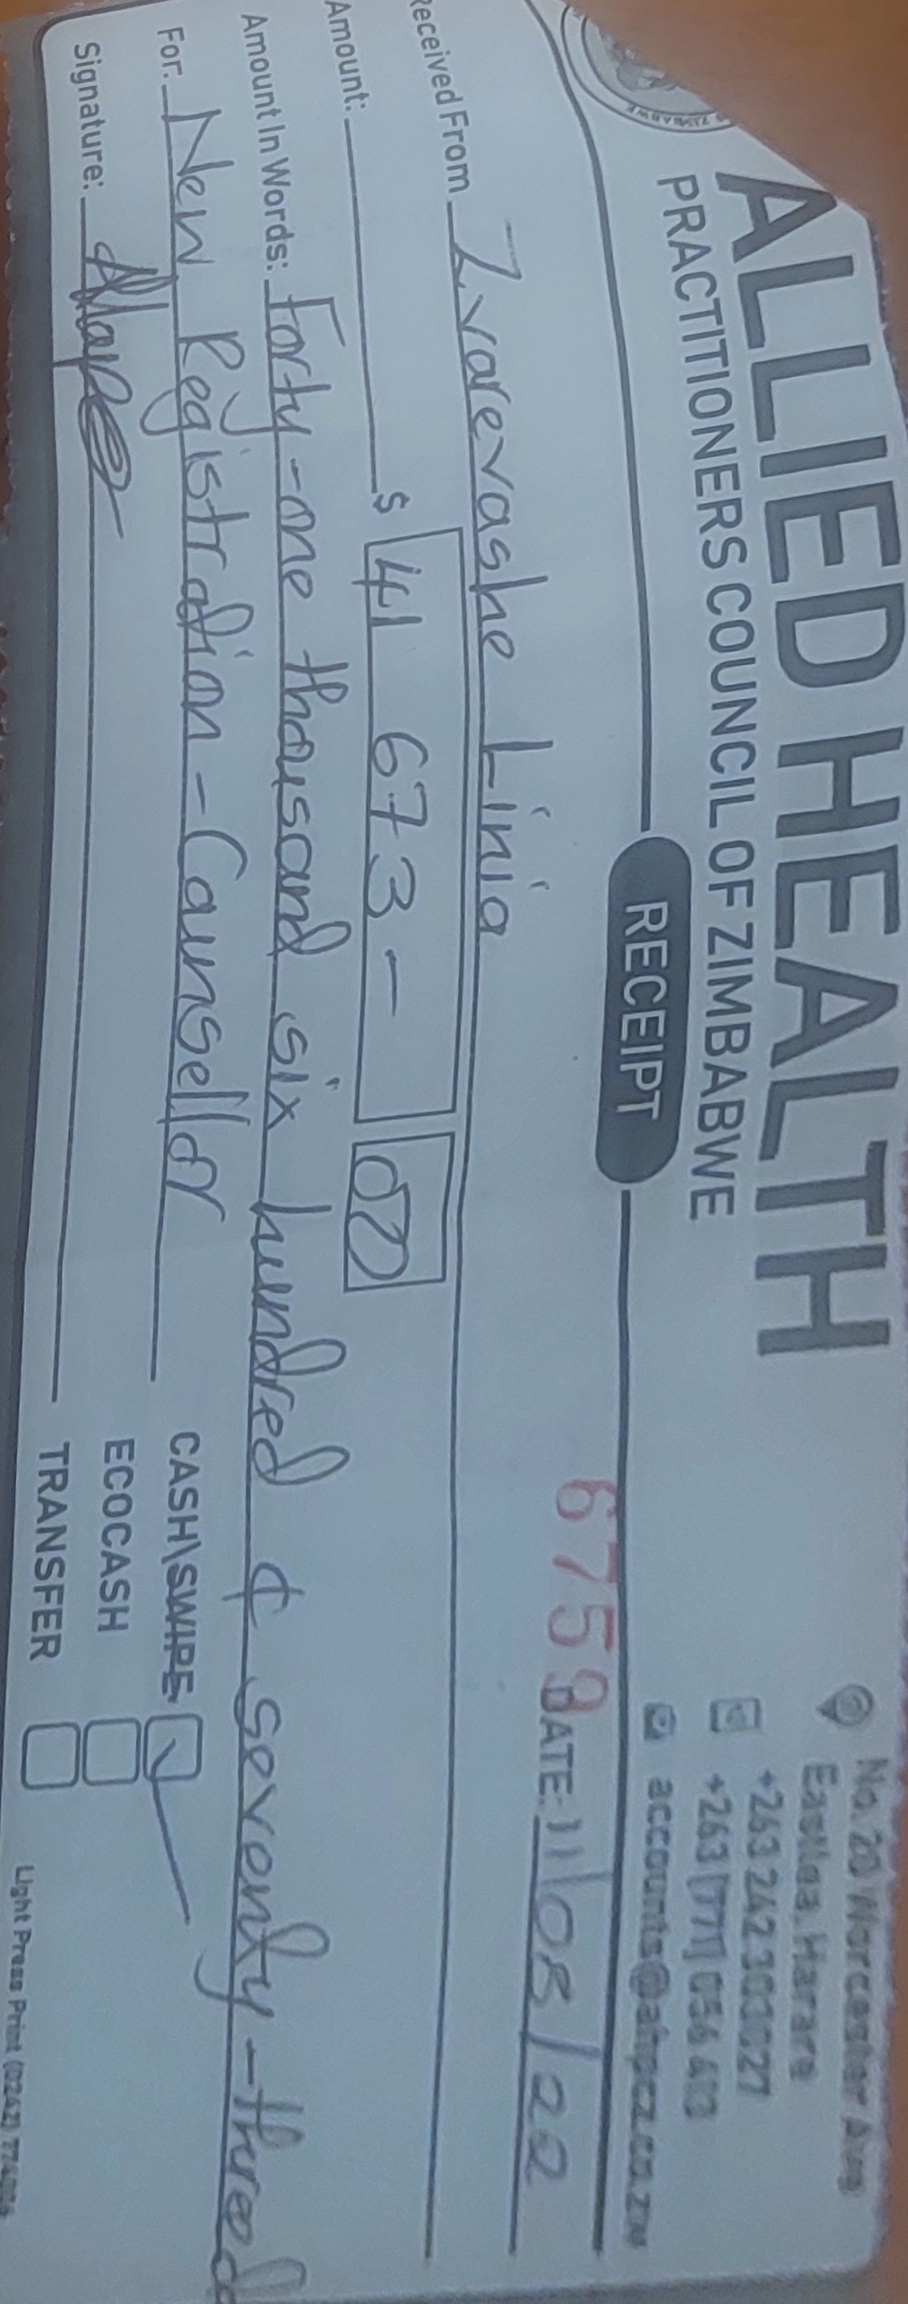 ALLIED HEALTH
PRACTITIONERS COUNCIL OF ZIMBABWE
No. 20 Worcester Ave
Eastlea, Harare
+263 242 303027
+263 (77)
accounts@ahpcz.co.zw
RECEIPT
6759
DATE: 11/08/22
Received From Zvarevashe Linia
Amount: $ 41 673 - 00
Amount In Words: Forty-one thousand six hundred & seventy-three
For: New Registration - Counsellor
CASH\SWIPE
ECOCASH
Signature:
TRANSFER
Light Press Print (0242)